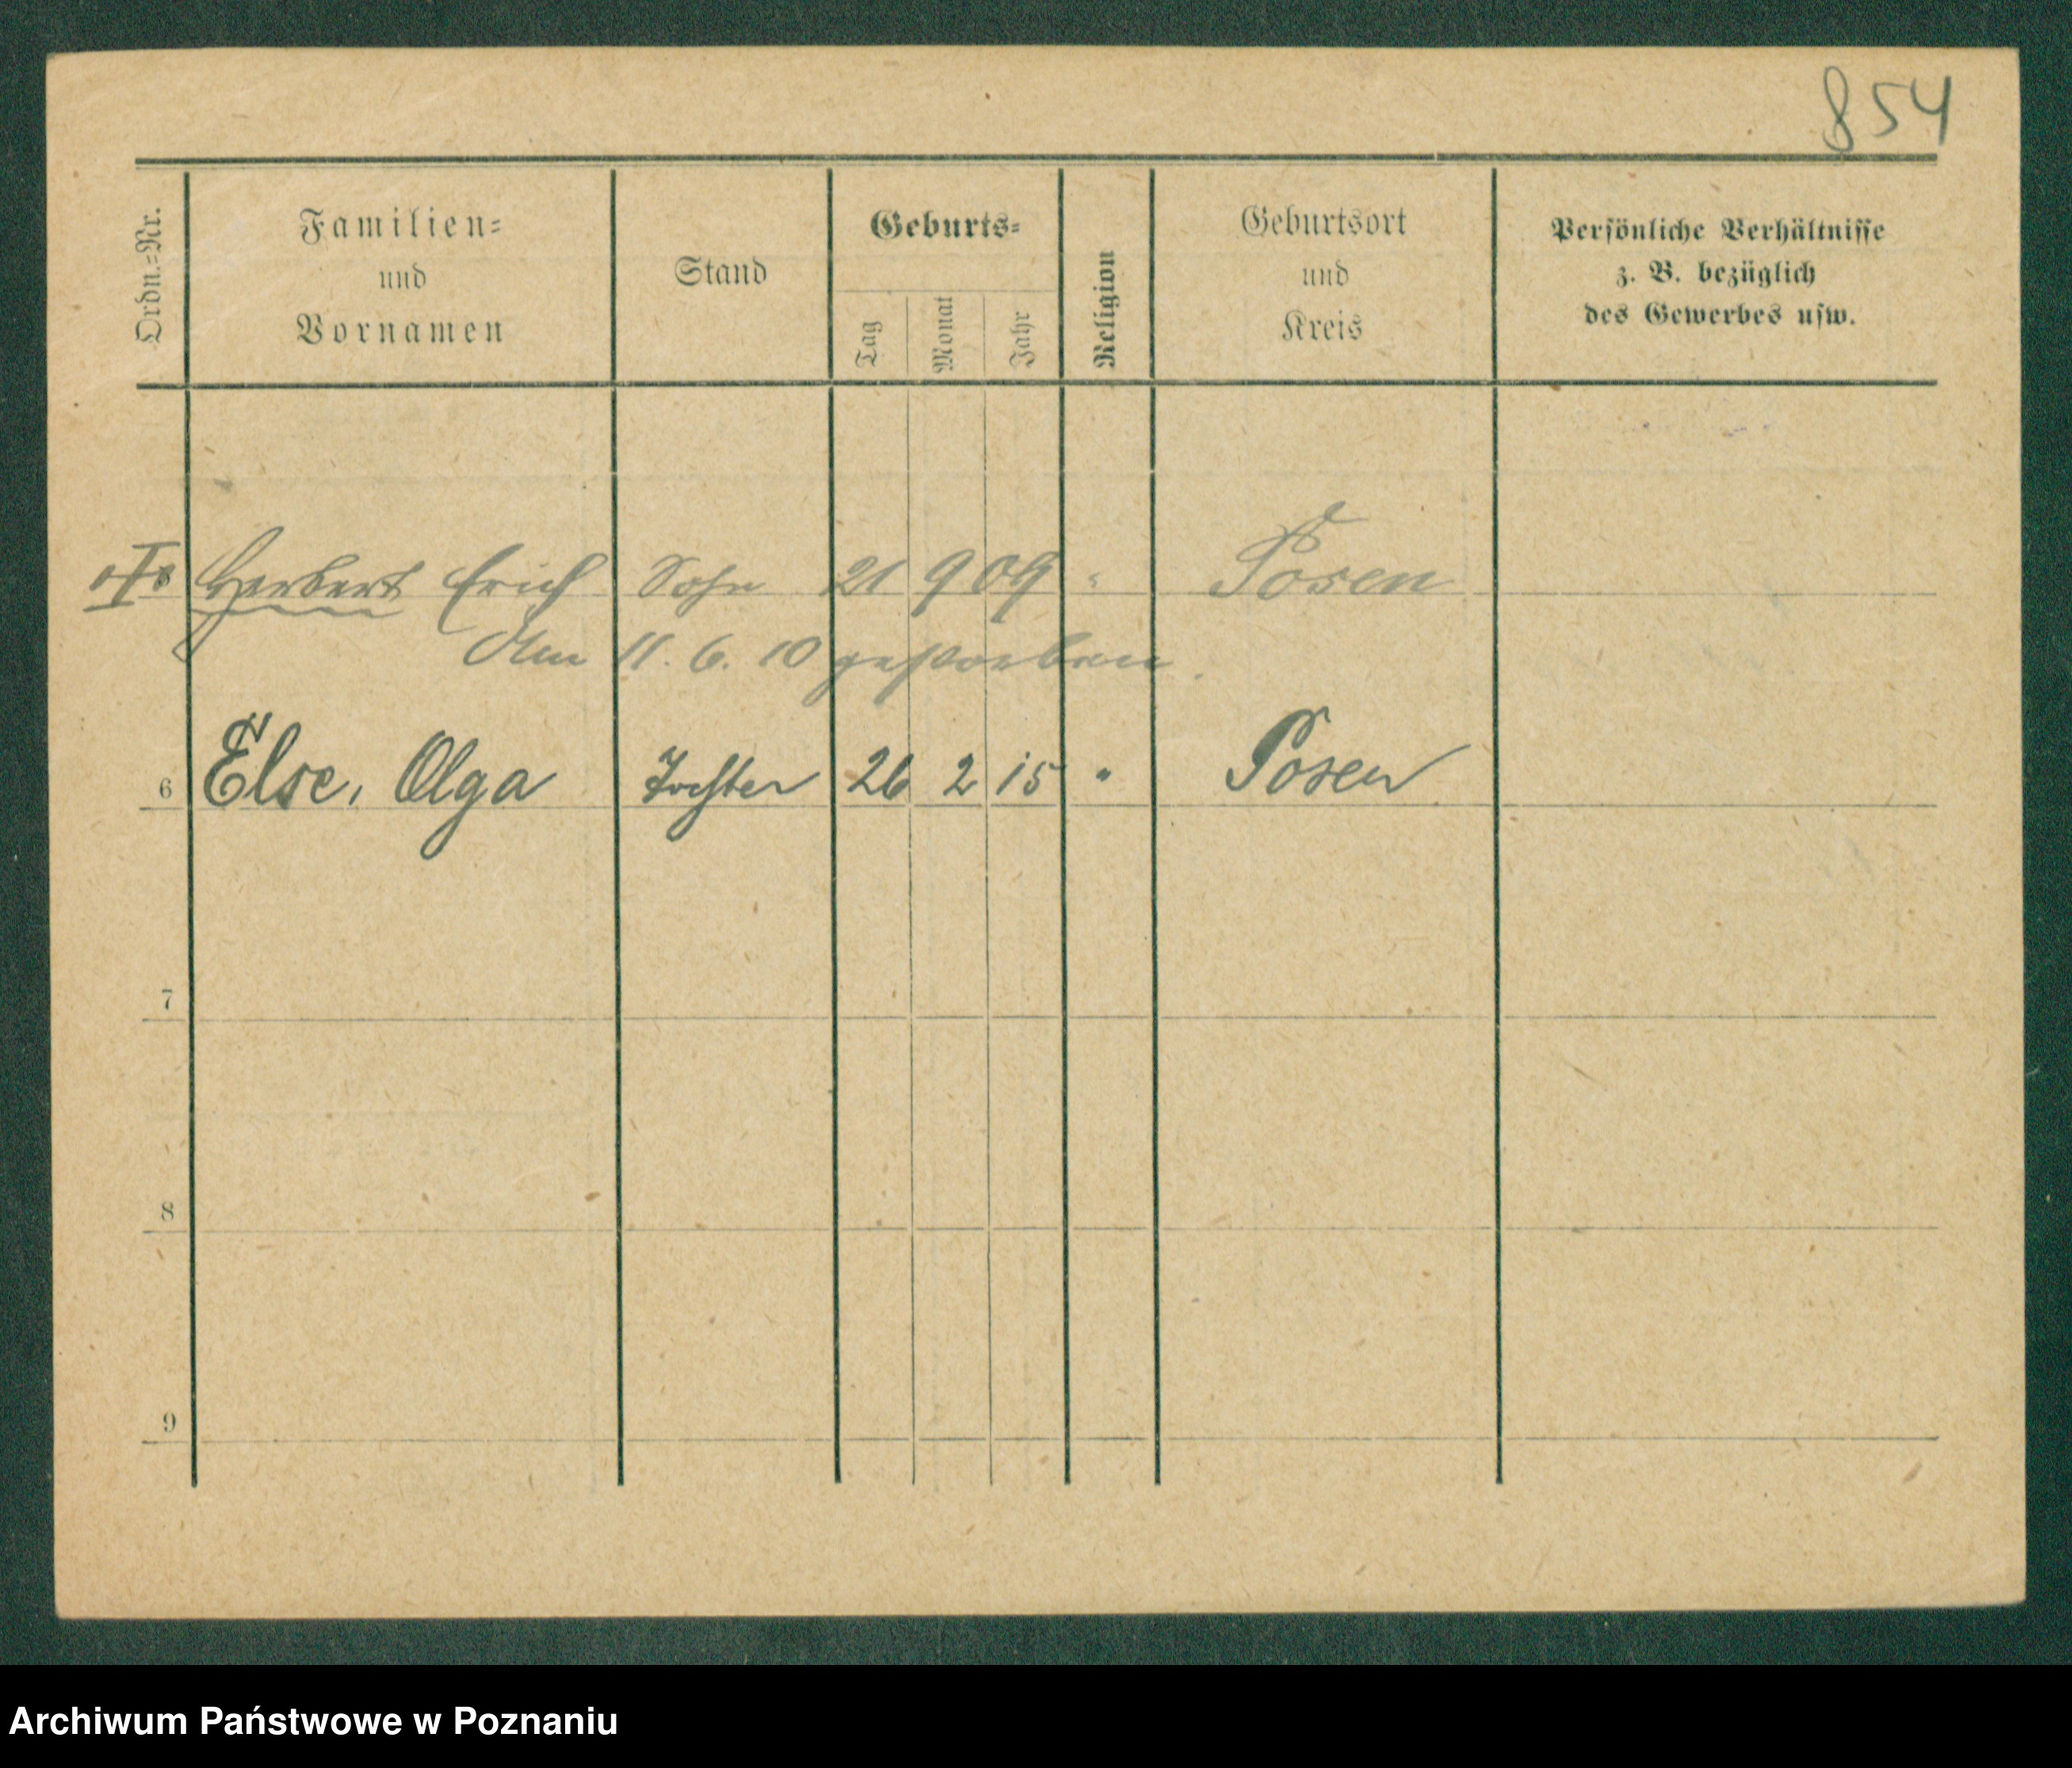 854
Ordn.=Nr. Familien= und Vornamen Stand Geburts= Tag Monat Jahr Religion Geburtsort und Kreis Persönliche Verhältnisse z. B. bezüglich des Gewerbes usw.
Herbert Erich Sohn 21 9 09 " Posen
Am 11. 6. 10 gestorben.
6 Else, Olga Tochter 26 2 15 " Posen
7
8
9
Archiwum Państwowe w Poznaniu